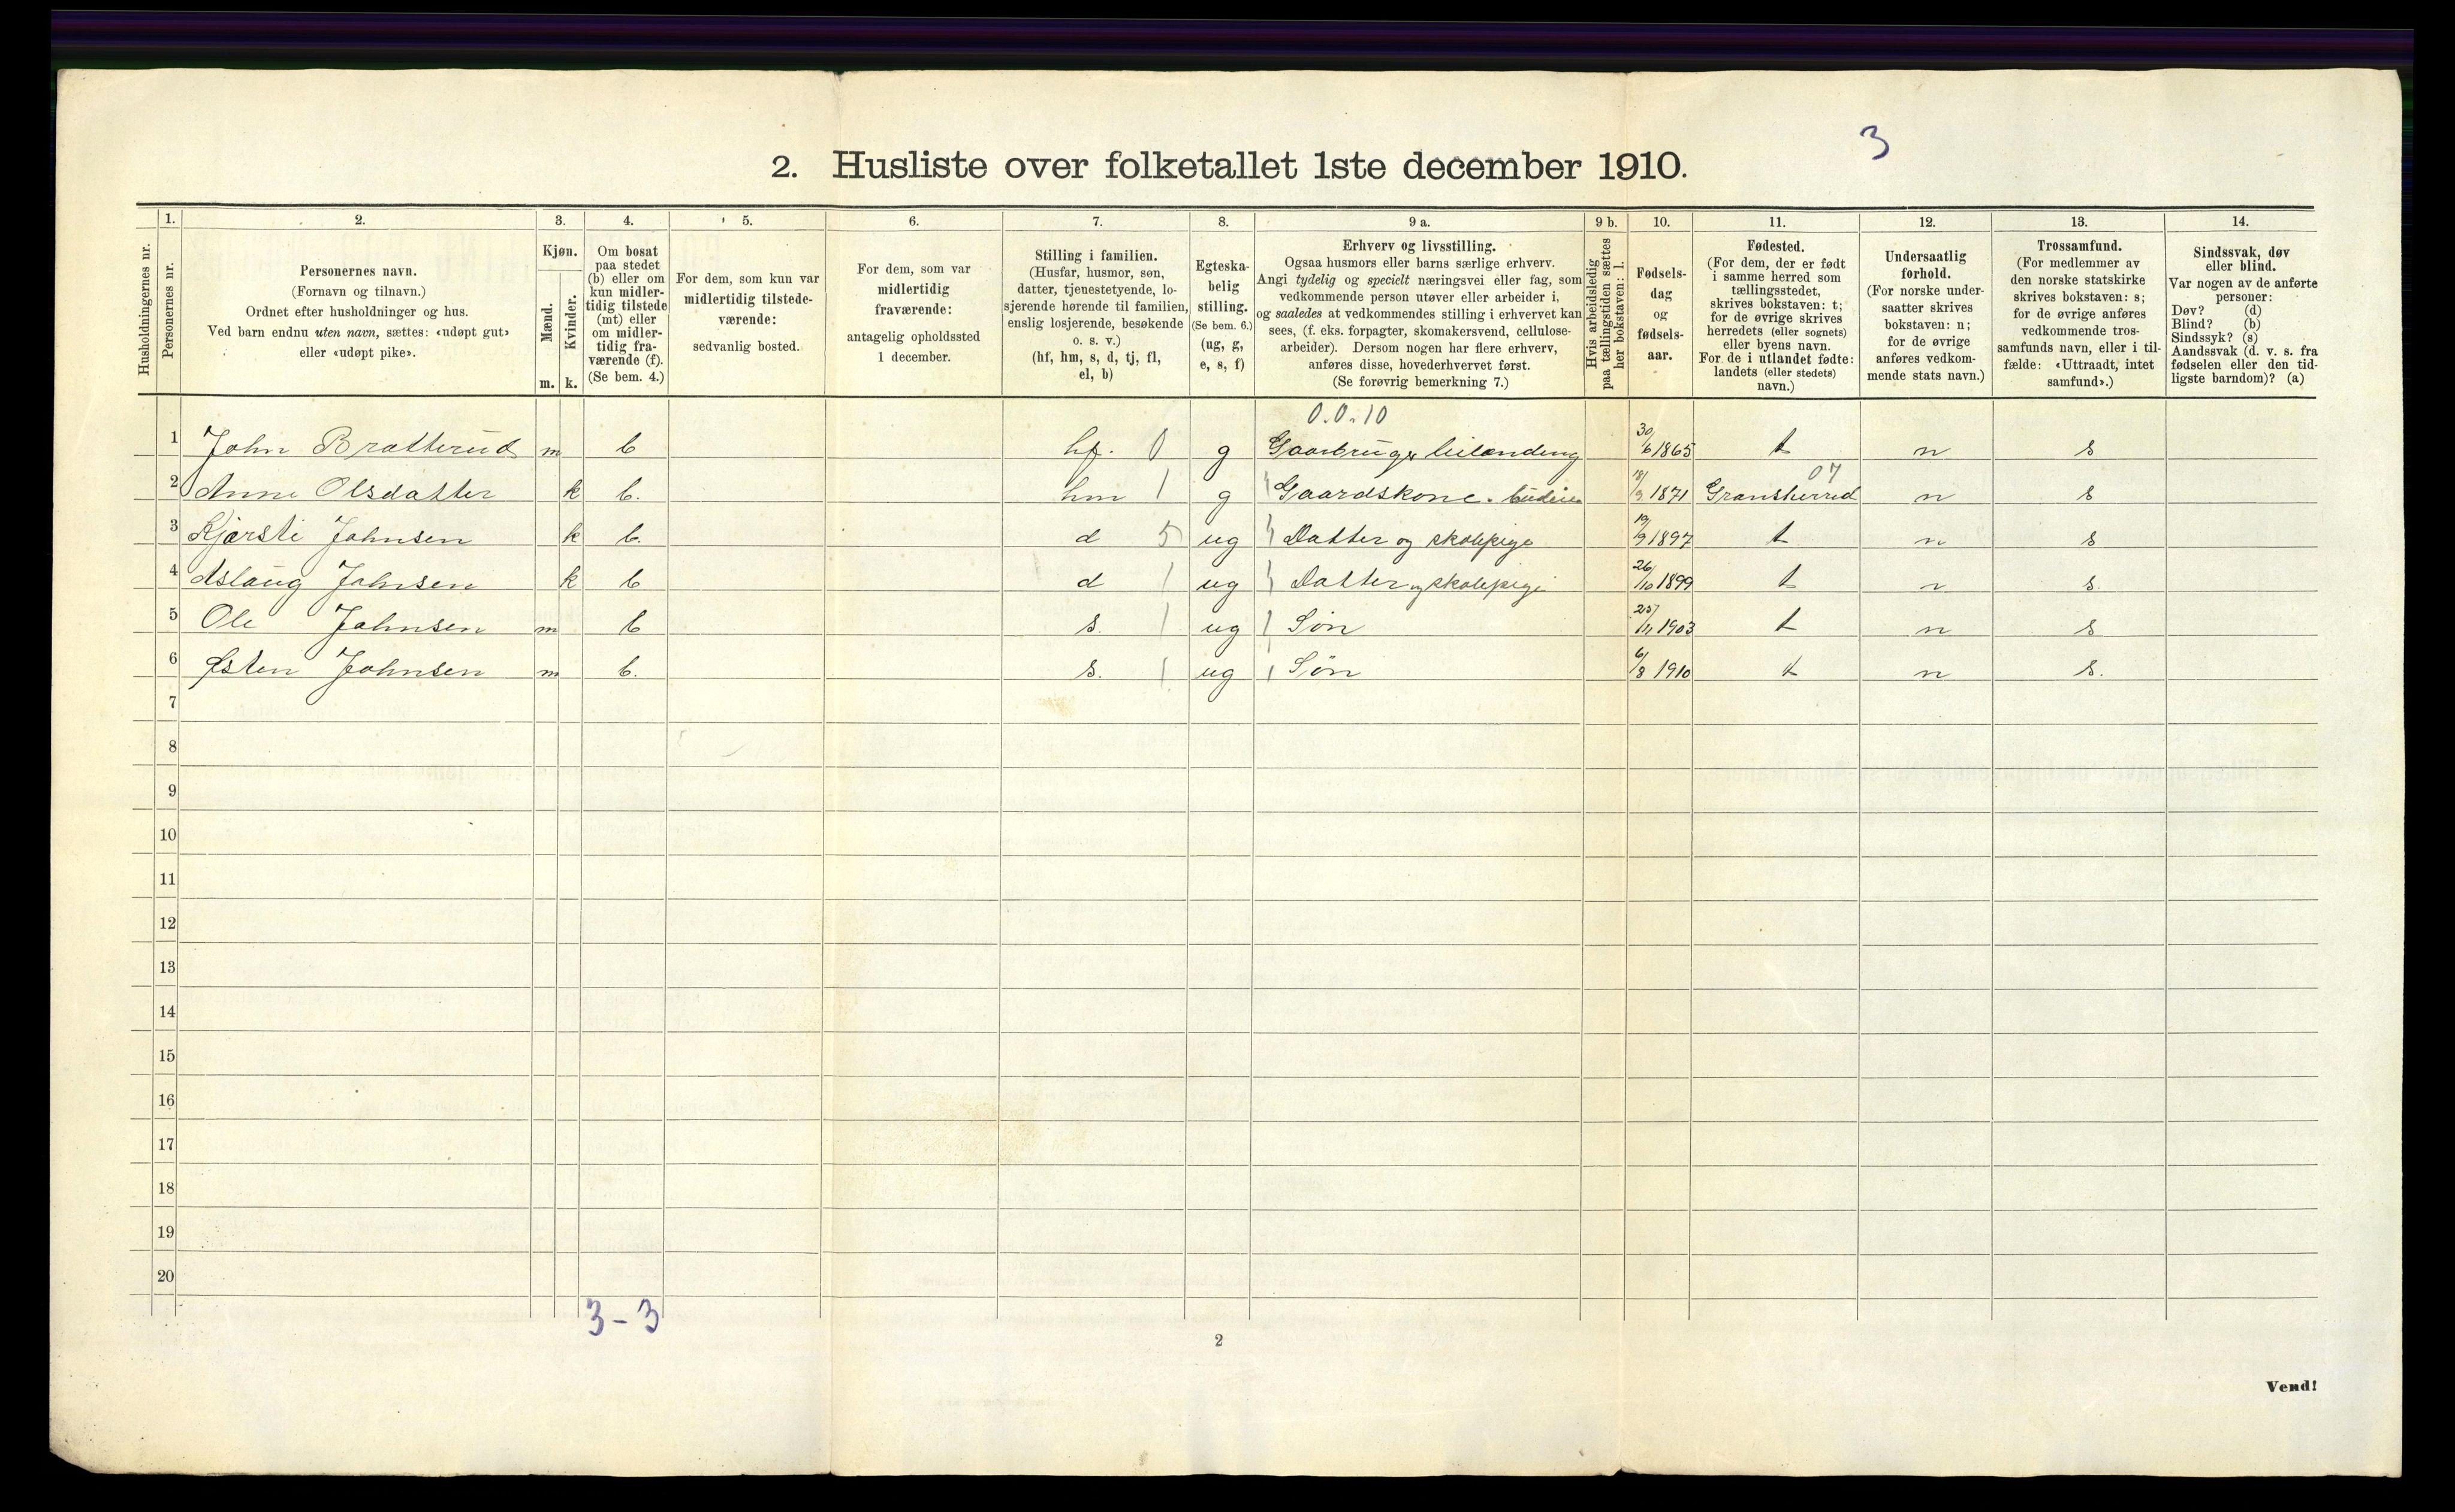 3
2. Husliste over folketallet 1ste december 1910.
1. 2. 3. 4. 5. 6. 7. 8. 9 a. 9 b. 10. 11. 12. 13. 14.
Husholdningernes nr.
Personernes nr.
Personernes navn.
(Fornavn og tilnavn.)
Ordnet efter husholdninger og hus.
Ved barn endnu uten navn, sættes: «udøpt gut»
eller «udøpt pike».
Kjøn.
Mænd.
m.
Kvinder.
k.
Om bosat
paa stedet
(b) eller om
kun midler-
tidig tilstede
(mt) eller
om midler-
tidig fra-
værende (f).
(Se bem. 4.)
For dem, som kun var
midlertidig tilstede-
værende:
sedvanlig bosted.
For dem, som var
midlertidig
fraværende:
antagelig opholdssted
1 december.
Stilling i familien.
(Husfar, husmor, søn,
datter, tjenestetyende, lo-
sjerende hørende til familien,
enslig losjerende, besøkende
o. s. v.)
(hf, hm, s, d, tj, fl,
el, b)
Egteska-
belig
stilling.
(Se bem. 6.)
(ug, g,
e, s, f)
Erhverv og livsstilling.
Ogsaa husmors eller barns særlige erhverv.
Angi tydelig og specielt næringsvei eller fag, som
vedkommende person utøver eller arbeider i,
og saaledes at vedkommendes stilling i erhvervet kan
sees, (f. eks. forpagter, skomakersvend, cellulose-
arbeider). Dersom nogen har flere erhverv,
anføres disse, hovederhvervet først.
(Se forøvrig bemerkning 7.)
Hvis arbeidsledig
paa tællingstiden sættes
her bokstaven: l.
Fødsels-
dag
og
fødsels-
aar.
Fødested.
(For dem, der er født
i samme herred som
tællingsstedet,
skrives bokstaven: t;
for de øvrige skrives
herredets (eller sognets)
eller byens navn.
For de i utlandet fødte:
landets (eller stedets)
navn.)
Undersaatlig
forhold.
(For norske under-
saatter skrives
bokstaven: n;
for de øvrige
anføres vedkom-
mende stats navn.)
Trossamfund.
(For medlemmer av
den norske statskirke
skrives bokstaven: s;
for de øvrige anføres
vedkommende tros-
samfunds navn, eller i til-
fælde: «Uttraadt, intet
samfund».)
Sindssvak, døv
eller blind.
Var nogen av de anførte
personer:
Døv? (d)
Blind? (b)
Sindssyk? (s)
Aandssvak (d. v. s. fra
fødselen eller den tid-
ligste barndom)? (a)
0.0.10
1 John Bratterud m b hf. 0 g Gaarbruger leilænding 30/6 1865 t n s
07
2 Anne Olsdatter k b. hm 1 g Gaardskone. budeie 18/9 1871 Gransherred n s
3 Kjærsti Johnsen k b. d 5 ug Datter og skolepige 19/9 1897 t n s
4 Aslaug Johnsen k b d 1 ug Datter og skolepige 26/10 1899 t n s.
5 Ole Johnsen m b s. 1 ug Søn 25/11 1903 t n s
6 Østen Johnsen m b. s. 1 ug Søn 6/8 1910 t n s.
7
8
9
10
11
12
13
14
15
16
17
18
19
20
3 - 3
2
Vend!